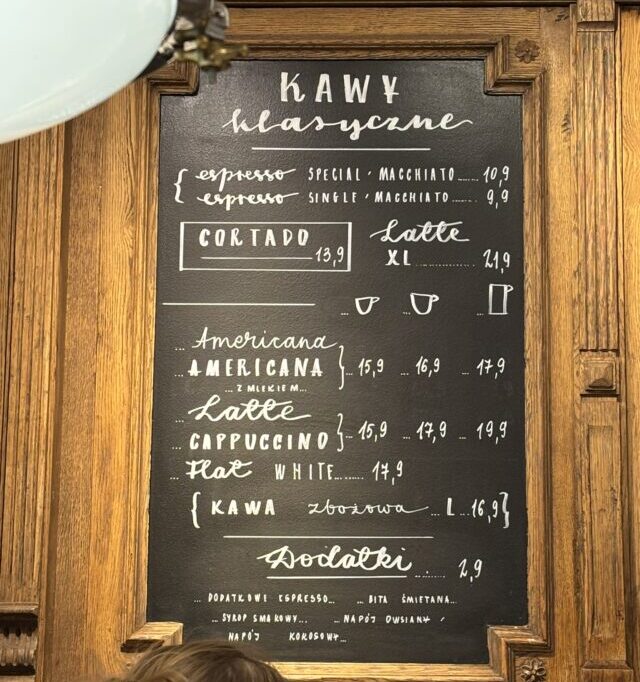 KAWY
klasyczne
{ espresso SPECIAL, MACCHIATO...... 10,9
espresso SINGLE, MACCHIATO...... 9,9
CORTADO
13,9
Latte
XL ............. 21,9
... Americana
... AMERICANA } ... 15,9 ... 16,9 ... 17,9
... Z MLEKIEM...
... Latte
... CAPPUCCINO } ... 15,9 ... 17,9 ... 19,9
... Flat WHITE....... 17,9
{ KAWA zbożowa ... L ... 16,9 }
Dodatki ....... 2,9
... DODATKOWE ESPRESSO... ... BITA ŚMIETANA...
... SYROP SMAKOWY... ... NAPÓJ OWSIANY,
NAPÓJ KOKOSOWY...